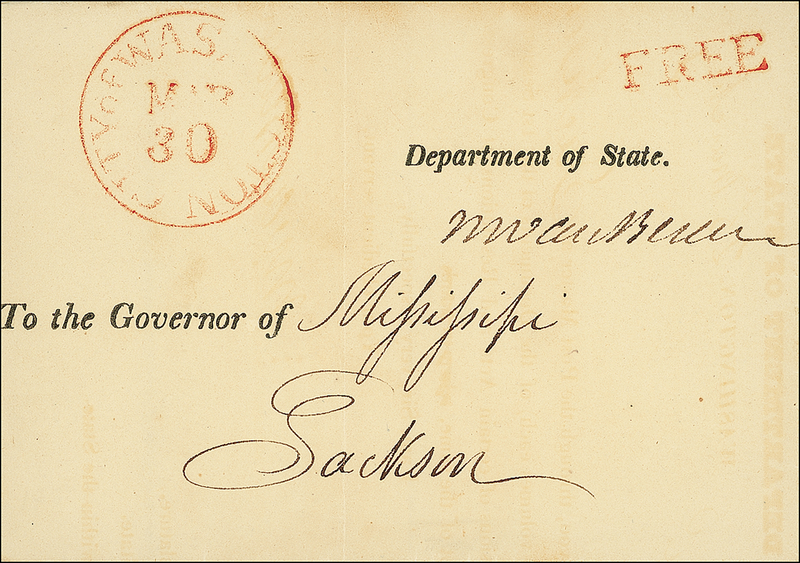 CITY OF WAS TON
MAR
30
FREE
Department of State.
MVanBuren
To the Governor of Mississipi
Jackson